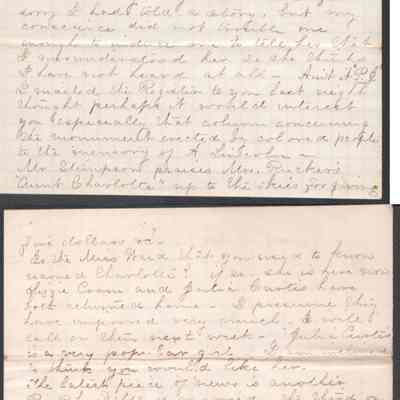 sorry I had told a story, but my
conscience did not trouble me
enough to induce me to tell her that
I misunderstood her so she thinks
I have not heard at all –
I mailed the Register to you last night
thought perhaps it would interest
you especially that column concerning
the monument erected by colored people
to the memory of A Lincoln –
Mr Stimpson praises Mrs.
"Aunt Charlotte" up to the skies for giving
five dollars
Is the Miss Ward that you used to know
named Charlotte? if so she is here now
Lizzie Coom and Julia Curtis have
both returned home – I presume they
have improved very much. I will
call on them next week – Julia Curtis
is a very popular girl –
think you would like her.
The latest piece of news is another